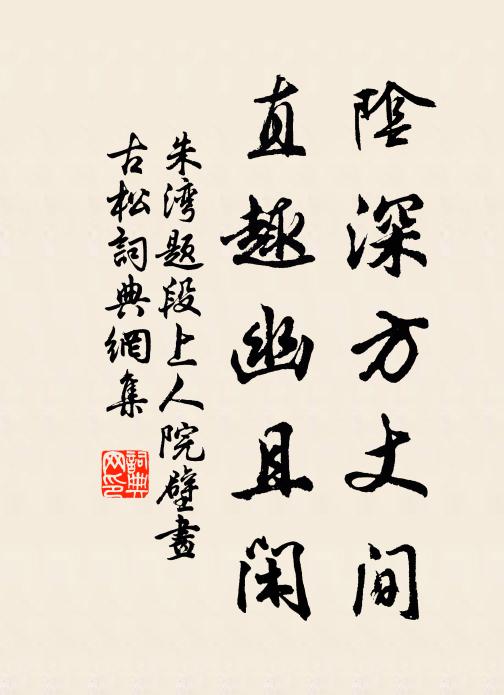 陰深方丈间
直趣幽且闲
朱湾题段上人院壁畫
古松詞典網集
詞典网印